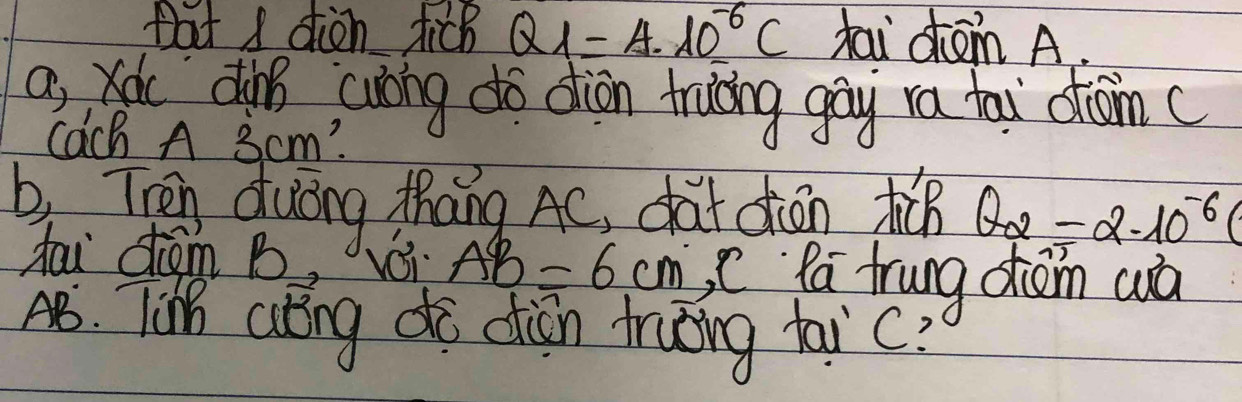 Đặt 1 điện tích Q1 = 4.10⁻⁶ C tại điểm A.
a, Xác định cường độ điện trường gây ra tại điểm C
cách A 3cm?
b, Trên đường thẳng AC, đặt điện tích Q2 = -2.10⁻⁶ C
tại điểm B, với AB = 6 cm, C là trung điểm của
AB. Tính cường độ điện trường tại C?